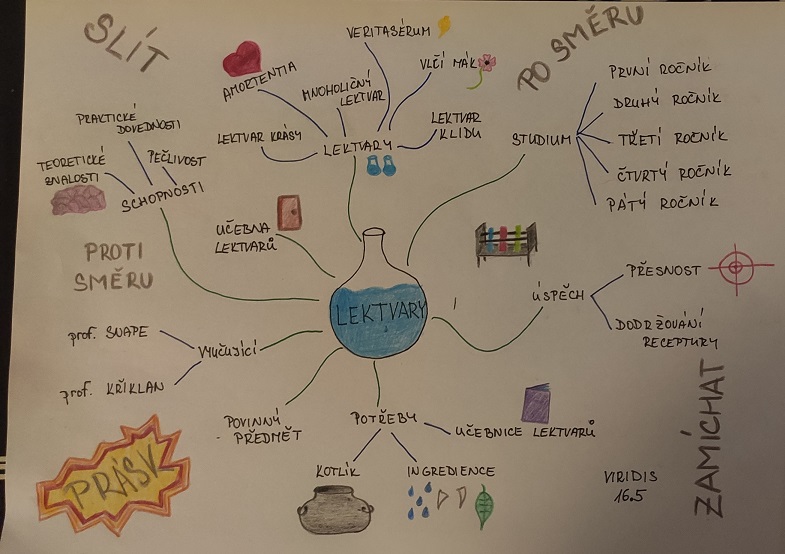 SLÍT
PO SMĚRU
VERITASÉRUM
VLČÍ MÁK
AMORTENTIA
MNOHOLIČNÝ
LEKTVAR
LEKTVAR KRÁSY
LEKTVAR
KLIDU
LEKTVARY
PRAKTICKÉ
DOVEDNOSTI
TEORETICKÉ
ZNALOSTI
PEČLIVOST
SCHOPNOSTI
STUDIUM
PRVNÍ ROČNÍK
DRUHÝ ROČNÍK
TŘETÍ ROČNÍK
ČTVRTÝ ROČNÍK
PÁTÝ ROČNÍK
UČEBNA
LEKTVARŮ
PROTI
SMĚRU
LEKTVARY
ÚSPĚCH
PŘESNOST
DODRŽOVÁNÍ
RECEPTURY
prof. SNAPE
VYUČUJÍCÍ
prof. KŘIKLAN
POVINNÝ
PŘEDMĚT
POTŘEBY
UČEBNICE LEKTVARŮ
KOTLÍK
INGREDIENCE
PRÁSK
ZAMÍCHAT
VIRIDIS
16.5